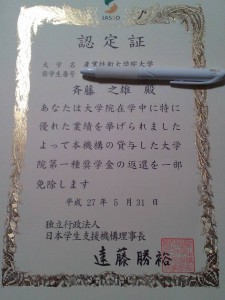 JASSO
認定証
大学名 産業技術大学院大学
奨学生番号
斉藤 之雄 殿
あなたは大学院在学中に特に
優れた業績を挙げられました
よって本機構の貸与した大学
院第一種奨学金の返還を一部
免除します
平成 27年 5月 31日
独立行政法人
日本学生支援機構理事長
遠藤勝裕